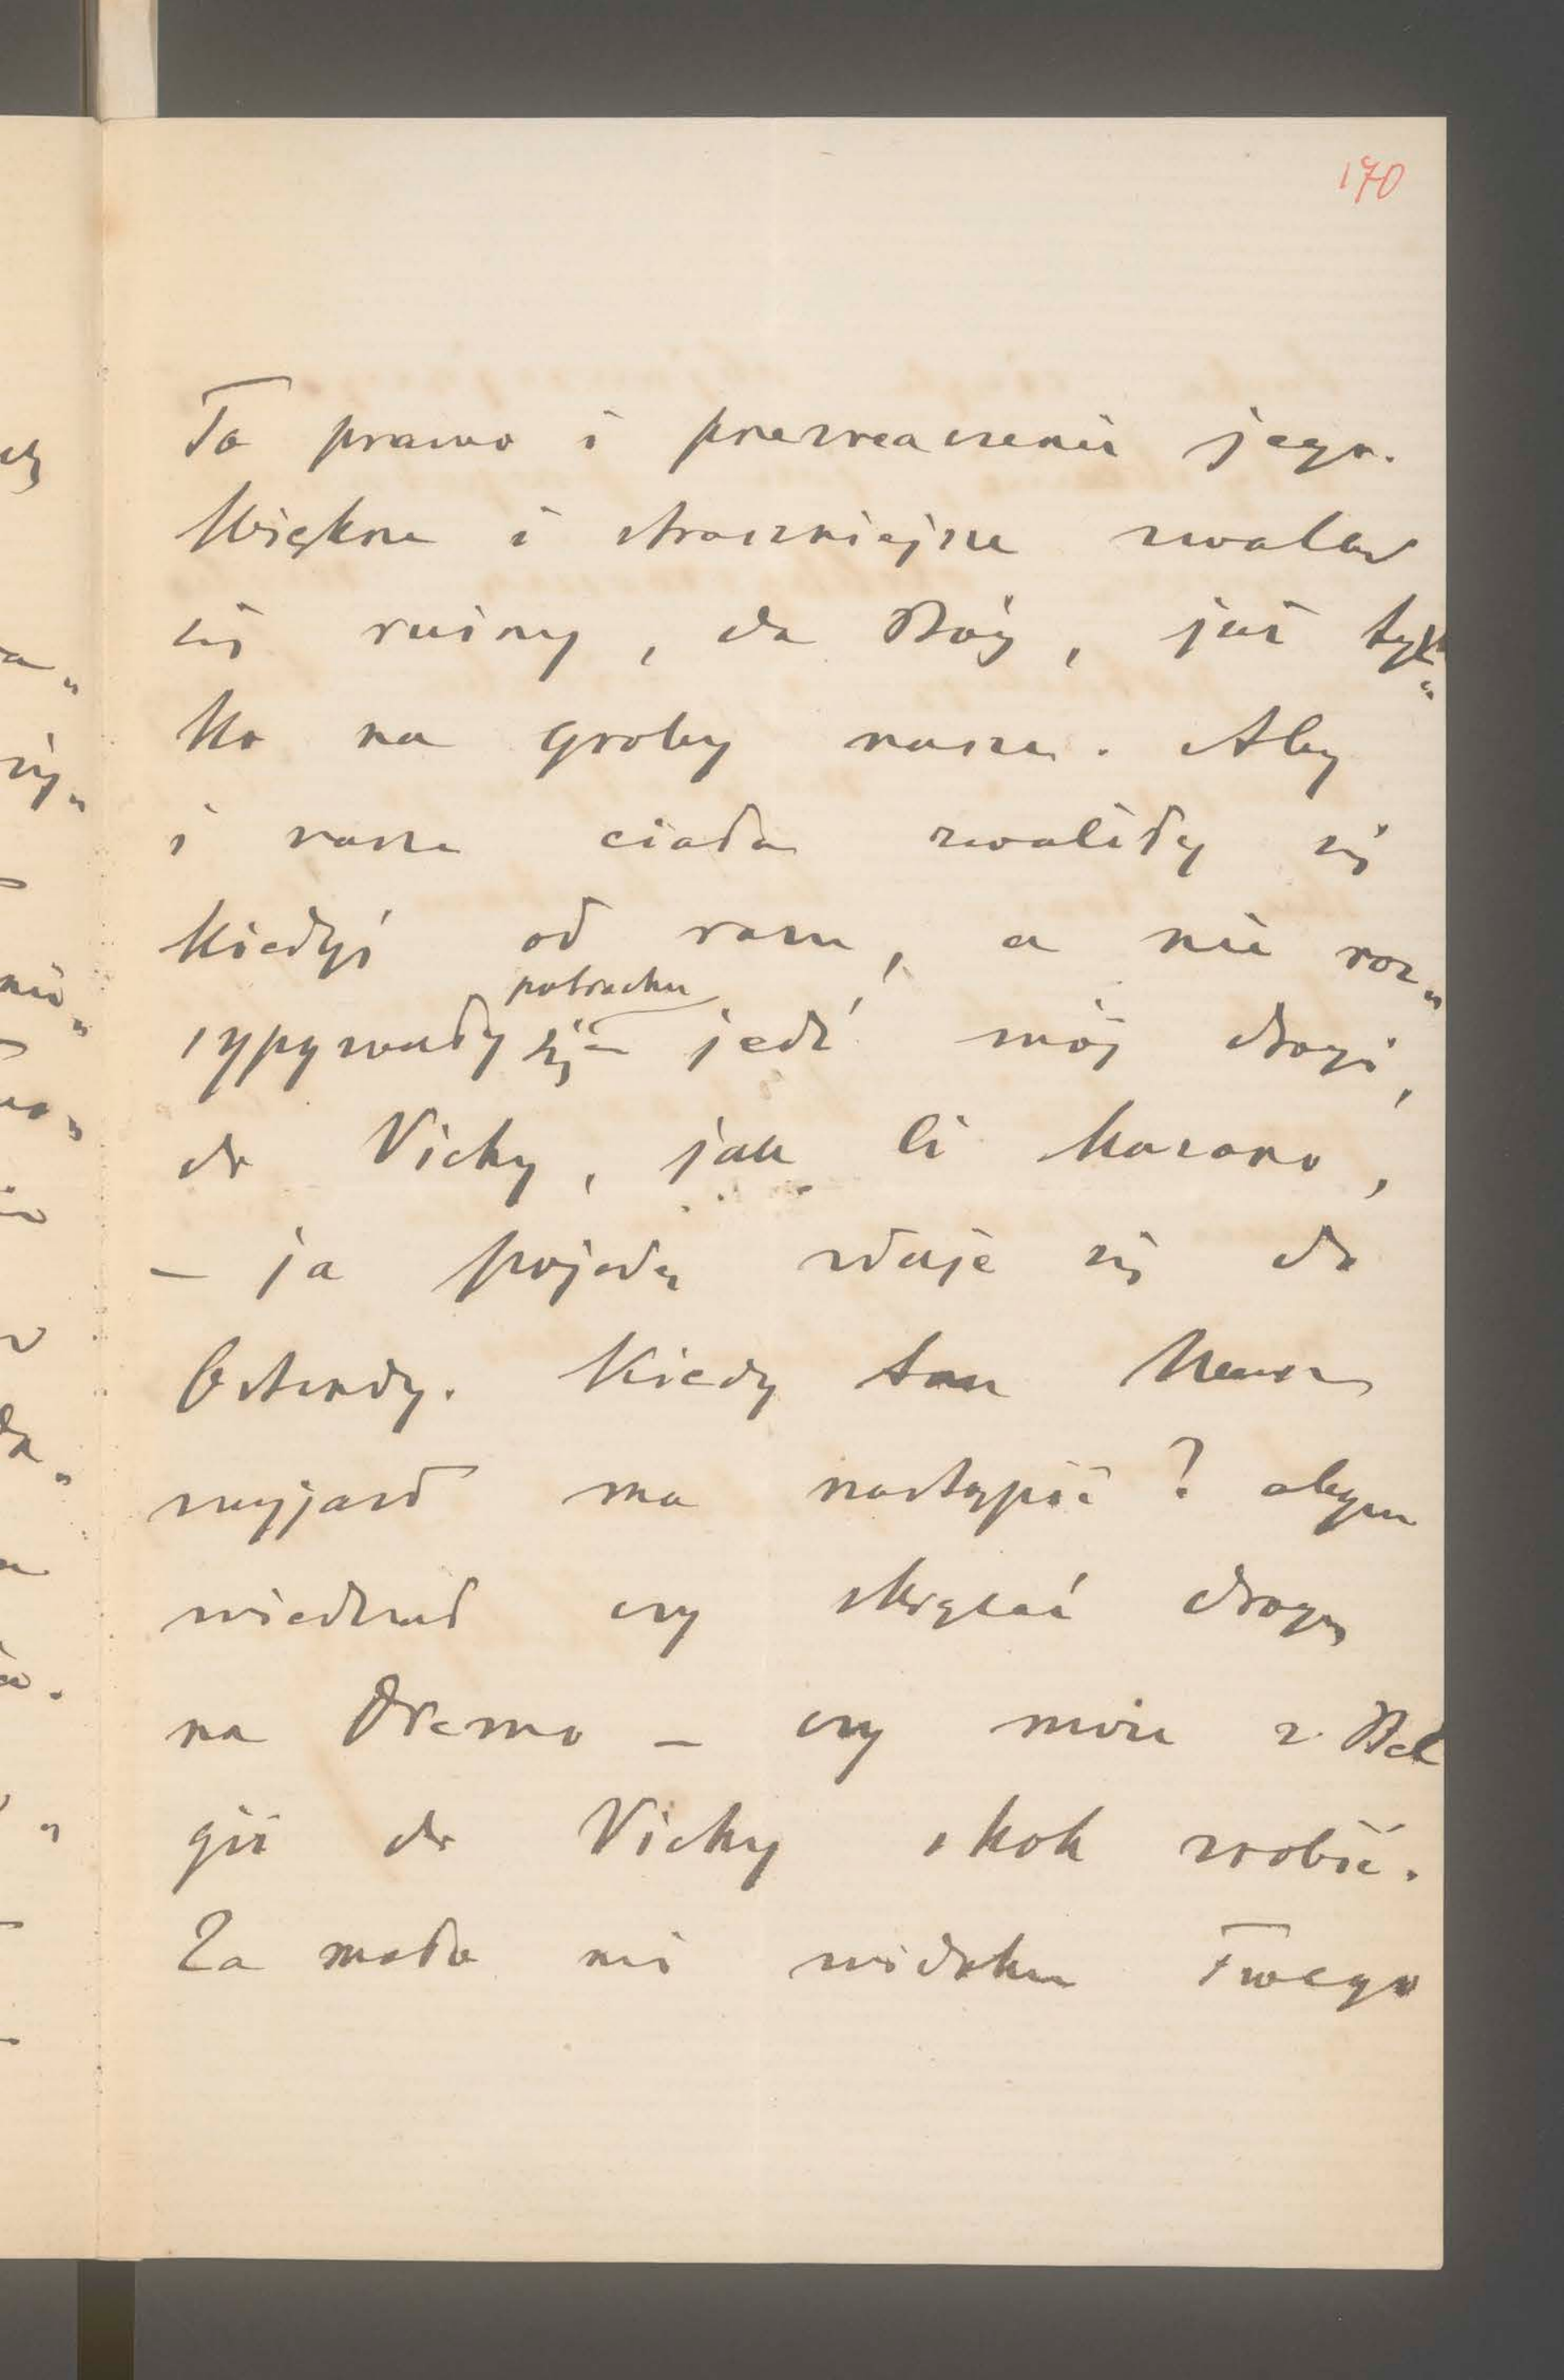 170
To prawo i przeznaczenie jego.
Większe i straszniejsze zwalą
się ruiny, da Bóg, już tyl„
ko na groby nasze. Aby
i nasze ciała zwaliły się
kiedyś od razu, a nie roz„
potrochu
sypywały się – jedź mój drogi,
do Vichy, jak Ci kazano,
– ja pojadę zdaje się do
Ostendy. Kiedy ten
wyjazd ma nastąpić? abym
wiedział czy skręcać drogę
na Drezno – czy może z Bel
gii do Vichy skok zrobić.
Za mało mi widoku Twego